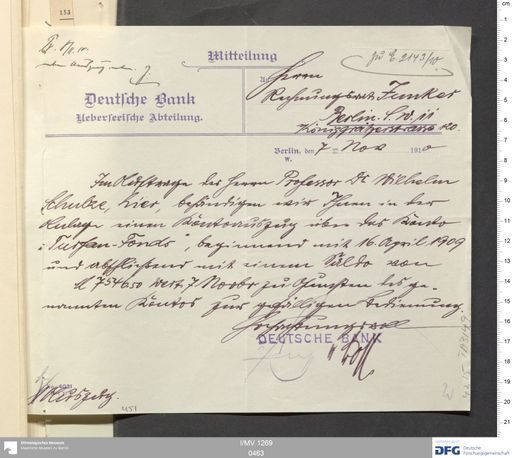 153
Mitteilung
zu E 2143/10
An
Herrn
Rechnungsrat Junker
Deutsche Bank
Ueberseeische Abteilung.
Berlin. S.W. 11
Königgrätzerstrasse 120.
Berlin, den 7 Nov 1910
W.
Im Auftrage des Herrn Professor Dr Wilhelm
Schulze, hier, behändigen wir Ihnen in der
Anlage einen Kontoauszug über das Konto
"Turfan-Fonds, beginnend mit 16 April 1909
und abschließend mit einem Saldo von
M 7546.50 wert 7 Novbr zu Gunsten des ge-
nannten Kontos zur gefälligen Bedienung.
Hochachtungsvoll
DEUTSCHE BANK
1 Auszug.
Ethnologisches Museum
Staatliche Museen zu Berlin
I/MV 1269
0463
DFG
Deutsche
Forschungsgemeinschaft
1
2
3
4
5
6
7
8
9
10
11
12
13
14
15
16
17
18
19
20
21